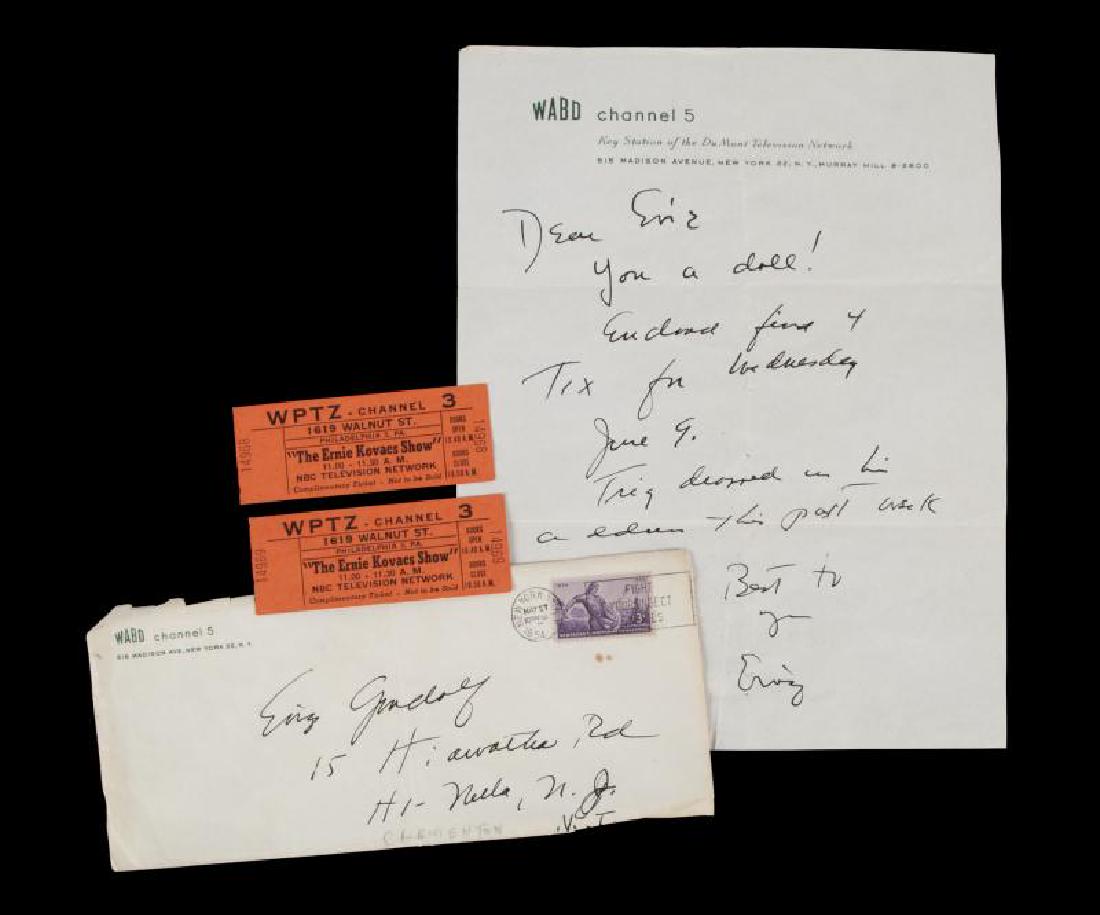 WABD channel 5
Key Station of the Du Mont Television Network
515 MADISON AVENUE, NEW YORK 22, N.Y., MURRAY HILL 8-2600
Dear
You a doll!
find 4
Tix for Wednesday
June 9.
Trig dropped in
this past week
Best to
you
WPTZ - CHANNEL 3
1619 WALNUT ST.
PHILADELPHIA 3, PA.
"The Ernie Kovacs Show"
11.00 - 11.30 A. M.
NBC TELEVISION NETWORK
Complimentary Ticket - Not to be Sold
DOORS
OPEN
10.45 A.M.
DOORS
CLOSE
10.55 A.M.
14968
14968
WPTZ - CHANNEL 3
1619 WALNUT ST.
PHILADELPHIA 3, PA.
"The Ernie Kovacs Show"
11.00 - 11.30 A. M.
NBC TELEVISION NETWORK
Complimentary Ticket - Not to be Sold
DOORS
OPEN
10.45 A.M.
DOORS
CLOSE
10.55 A.M.
14969
4969
WABD channel 5
515 MADISON AVE., NEW YORK 22, N.Y.
NEW YORK
MAY 27
1954
FIGHT
15 Hiawatha Rd
Hi-Nella, N.J.
CLEMENTON